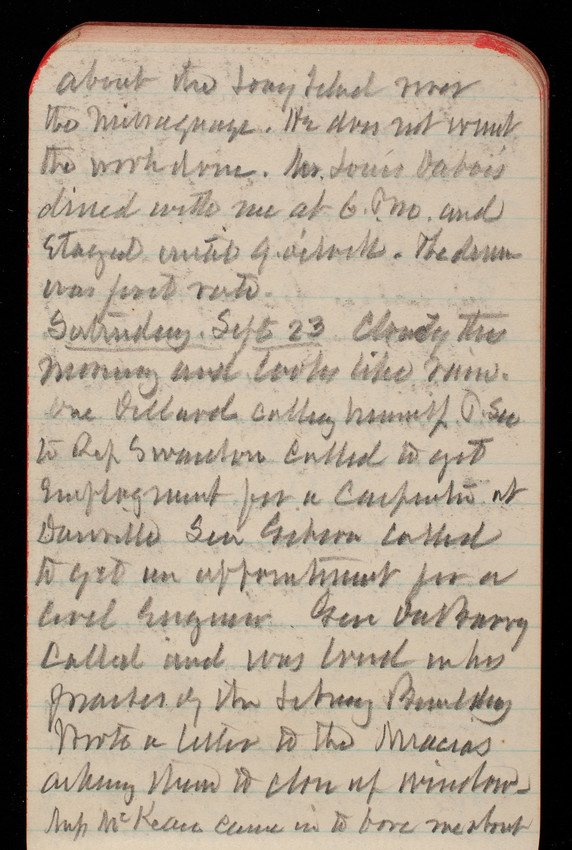 about the Long Island over
the Missagnage. He does not want
the work done. Mr. Louis Dabois
dined with me at 6. P.M. and
stayed until 9 o'clock. The dinner
was first rate.
Saturday. Sept 23 Cloudy this
morning and looks like rain.
One Dillard calling himself P. Sec
to Rep Swanton called to get
employment for a Carpenter at
Danville Gen Gibson called
to get an appointment for a
Civil Engineer. Gen DuBarry
called and was loud in his
praises of the Library Building
Wrote a letter to the
asking them to clon up window-
Mrs McKean came in to bore me about